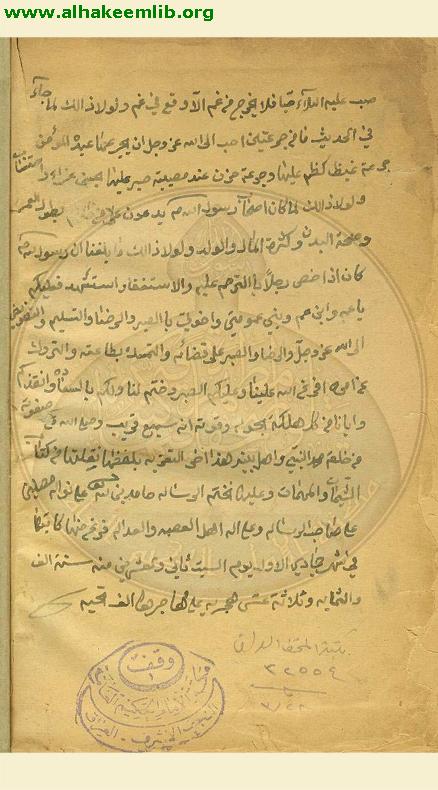 www.alhakeemlib.org
صب عليه البلاء صبا فلا يخرج من غم الا وقع في غم ولولا ذلك لما جاء
في الحديث ما من جرعتين احب الى الله عز وجل ان يجرعهما عبده المؤمن
جرعة غيظ كظم عليها وجرعة حزن عند مصيبة صبر عليها بحسن عزاء واحتساب
ولولا ذلك لما كان اصحاب رسول الله ص يدعون على من ظلمهم بطول العمر
وصحة البدن وكثرة المال والولد ولولا ذلك ما بلغنا ان رسول الله ص
كان اذا خص رجلا بالترحم عليه والاستغفار استشهد فعليكم
يا عم وابن عم وبني عمومتي واخوتي بالصبر والرضا والتسليم والتفويض
الى الله عز وجل والرضا والصبر على قضائه والتمسك بطاعته والنزول
عند امره افرغ الله علينا وعليكم الصبر وختم لنا ولكم بالسعادة وانقذكم
وايانا من كل هلكة بحوله وقوته انه سميع قريب وصلى الله على صفوته
من خلقه محمد النبي واهل بيته هذا اخر التعزية بلفظها نقلتها من كتاب
حامدين لله على نواله مصلين
على صاحب الرسالة وعلى اله اهل العصمة والعدالة فرغ منها كاتبها
في شهر جمادي الاولى يوم السبت ثاني وعشرين منه سنة الف
والثمائة وثلاثة عشر هجرية على مهاجرها الف تحية
٢٢٥٥٤
وقف
مكتبة الامام الحكيم العامة
النجف الاشرف - العراق